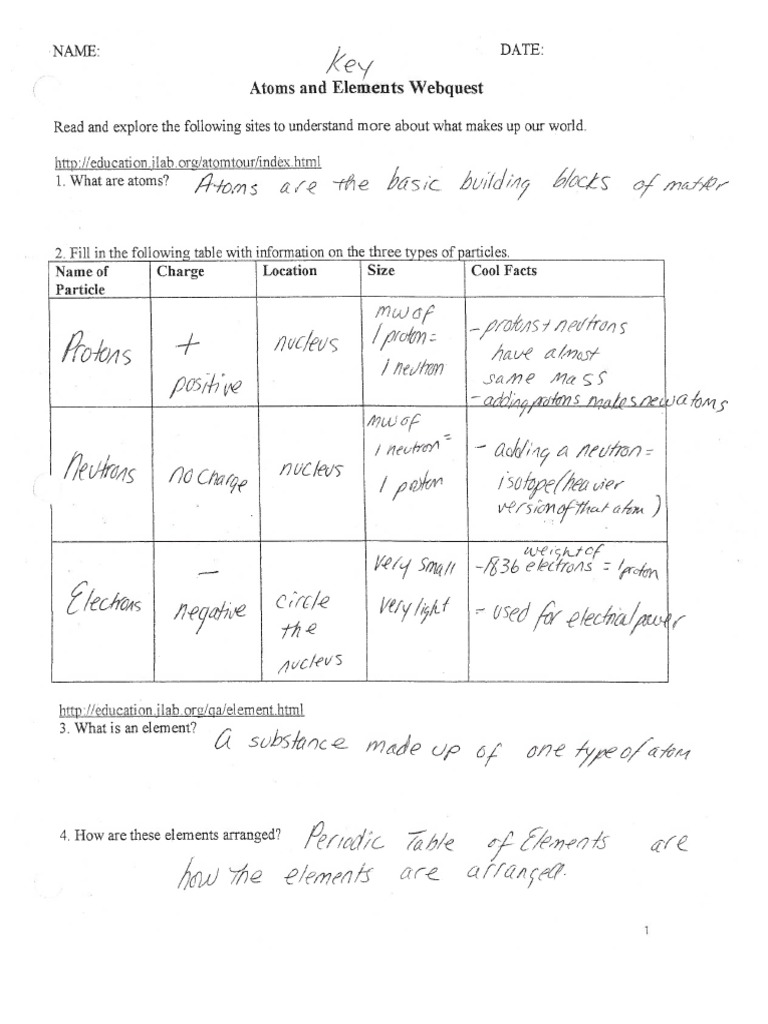 NAME:
Key
DATE:
Atoms and Elements Webquest
Read and explore the following sites to understand more about what makes up our world.
http://education.jlab.org/atomtour/index.html
1. What are atoms? Atoms are the basic building blocks of matter
2. Fill in the following table with information on the three types of particles.
Name of
Particle
Charge
Location
Size
Cool Facts
Protons
+
positive
nucleus
mw of
1 proton =
1 neutron
- protons + neutrons
have almost
same mass
- adding protons makes new atoms
Neutrons
no charge
nucleus
mw of
1 neutron =
1 proton
- adding a neutron =
isotope (heavier
version of that atom)
Electrons
-
negative
circle
the
nucleus
very small
very light
weight of
- 1836 electrons = 1 proton
- used for electrical power
http://education.jlab.org/qa/element.html
3. What is an element? a substance made up of one type of atom
4. How are these elements arranged? Periodic Table of Elements are
how the elements are arranged.
1